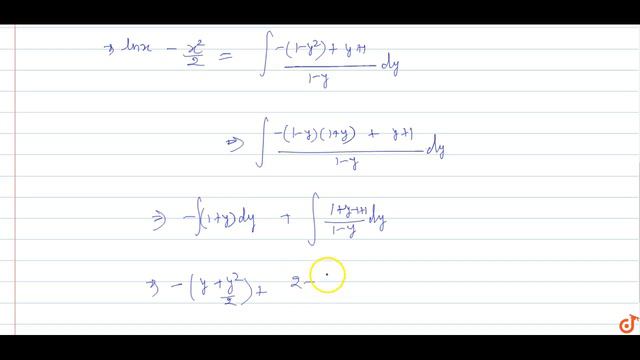 ⇒ lnx - x²/2 = ∫ -(1-y²) + y+1 / 1-y dy
⇒ ∫ -(1-y)(1+y) + y+1 / 1-y dy
⇒ -∫(1+y)dy + ∫ 1+y-1+1 / 1-y dy
⇒ -(y + y²/2) + 2-